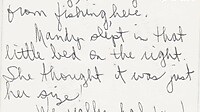 from fishing here.
Mandy slept in that
little bed on the right.
She thought it was just
her size!